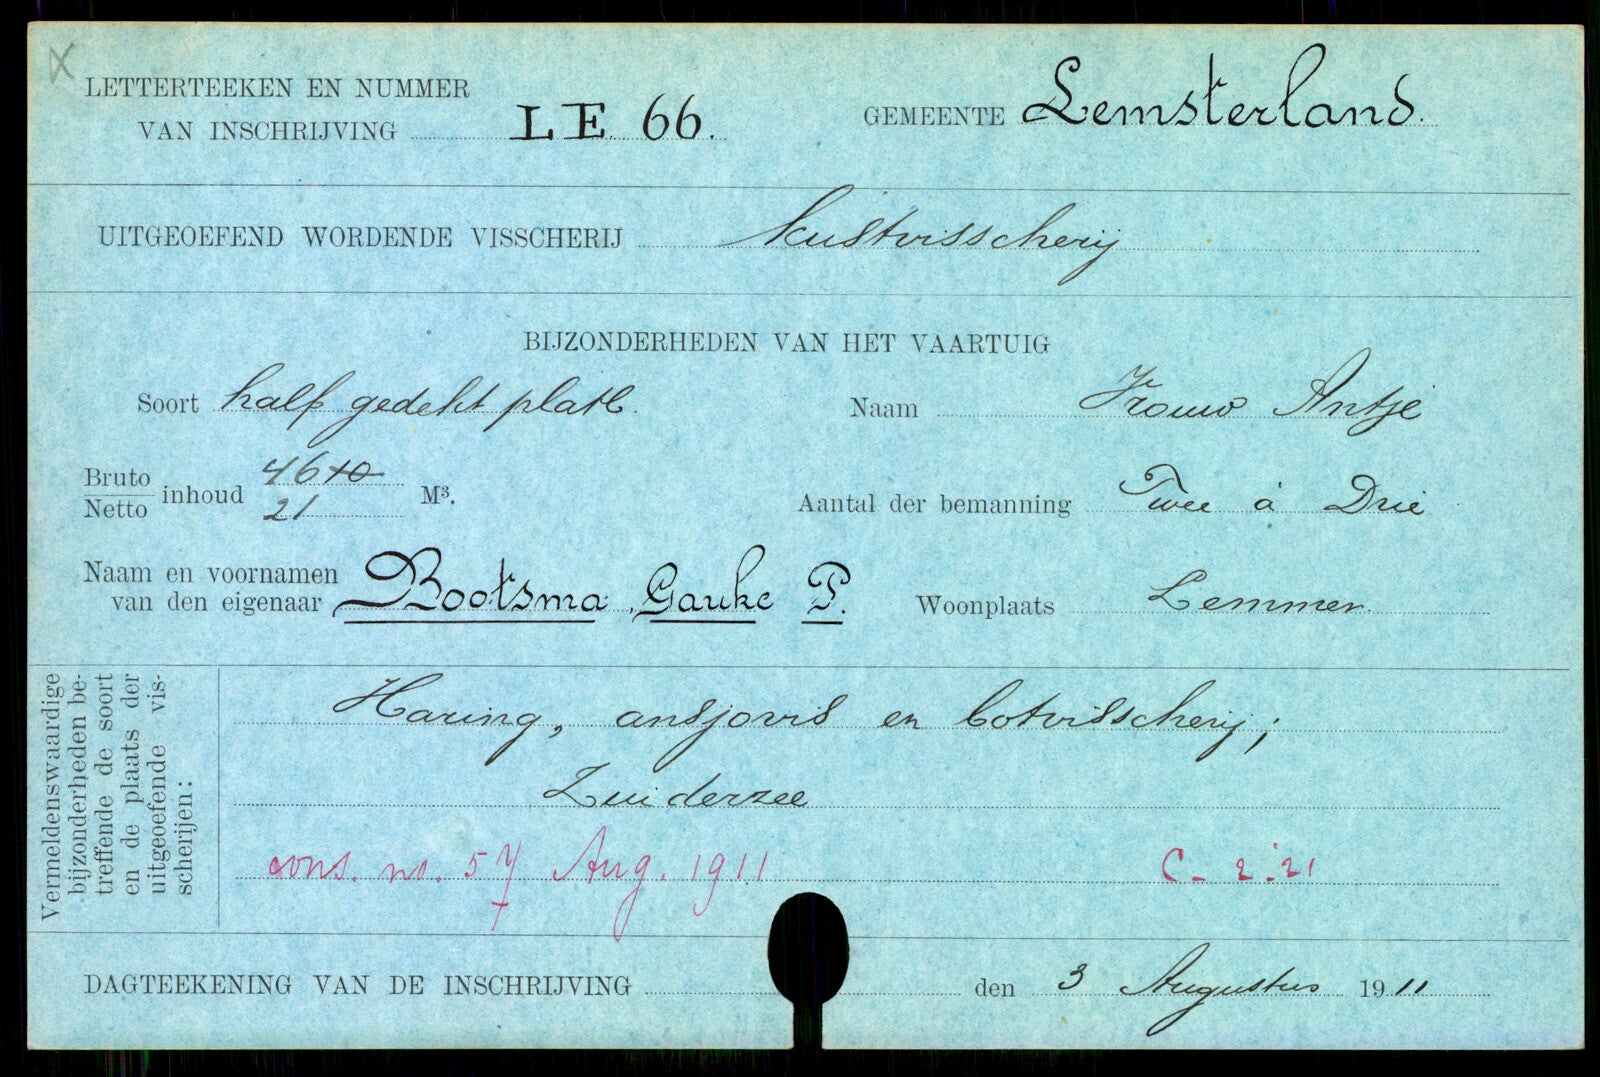 LETTERTEEKEN EN NUMMER
VAN INSCHRIJVING LE 66.
GEMEENTE Lemsterland.
UITGEOEFEND WORDENDE VISSCHERIJ kustvisscherij
BIJZONDERHEDEN VAN HET VAARTUIG
Soort half gedekt platb.
Naam Vrouw Antje
Bruto 46
Netto inhoud 21 M³.
Aantal der bemanning Twee à Drie
Naam en voornamen
van den eigenaar Bootsma, Gauke P.
Woonplaats Lemmer
Vermeldenswaardige
bijzonderheden be-
treffende de soort
en de plaats der
uitgeoefende vis-
scherijen:
Haring, ansjovis en botvisscherij;
Zuiderzee
cons. no. 57 Aug. 1911 C-2-21
DAGTEEKENING VAN DE INSCHRIJVING den 3 Augustus 1911